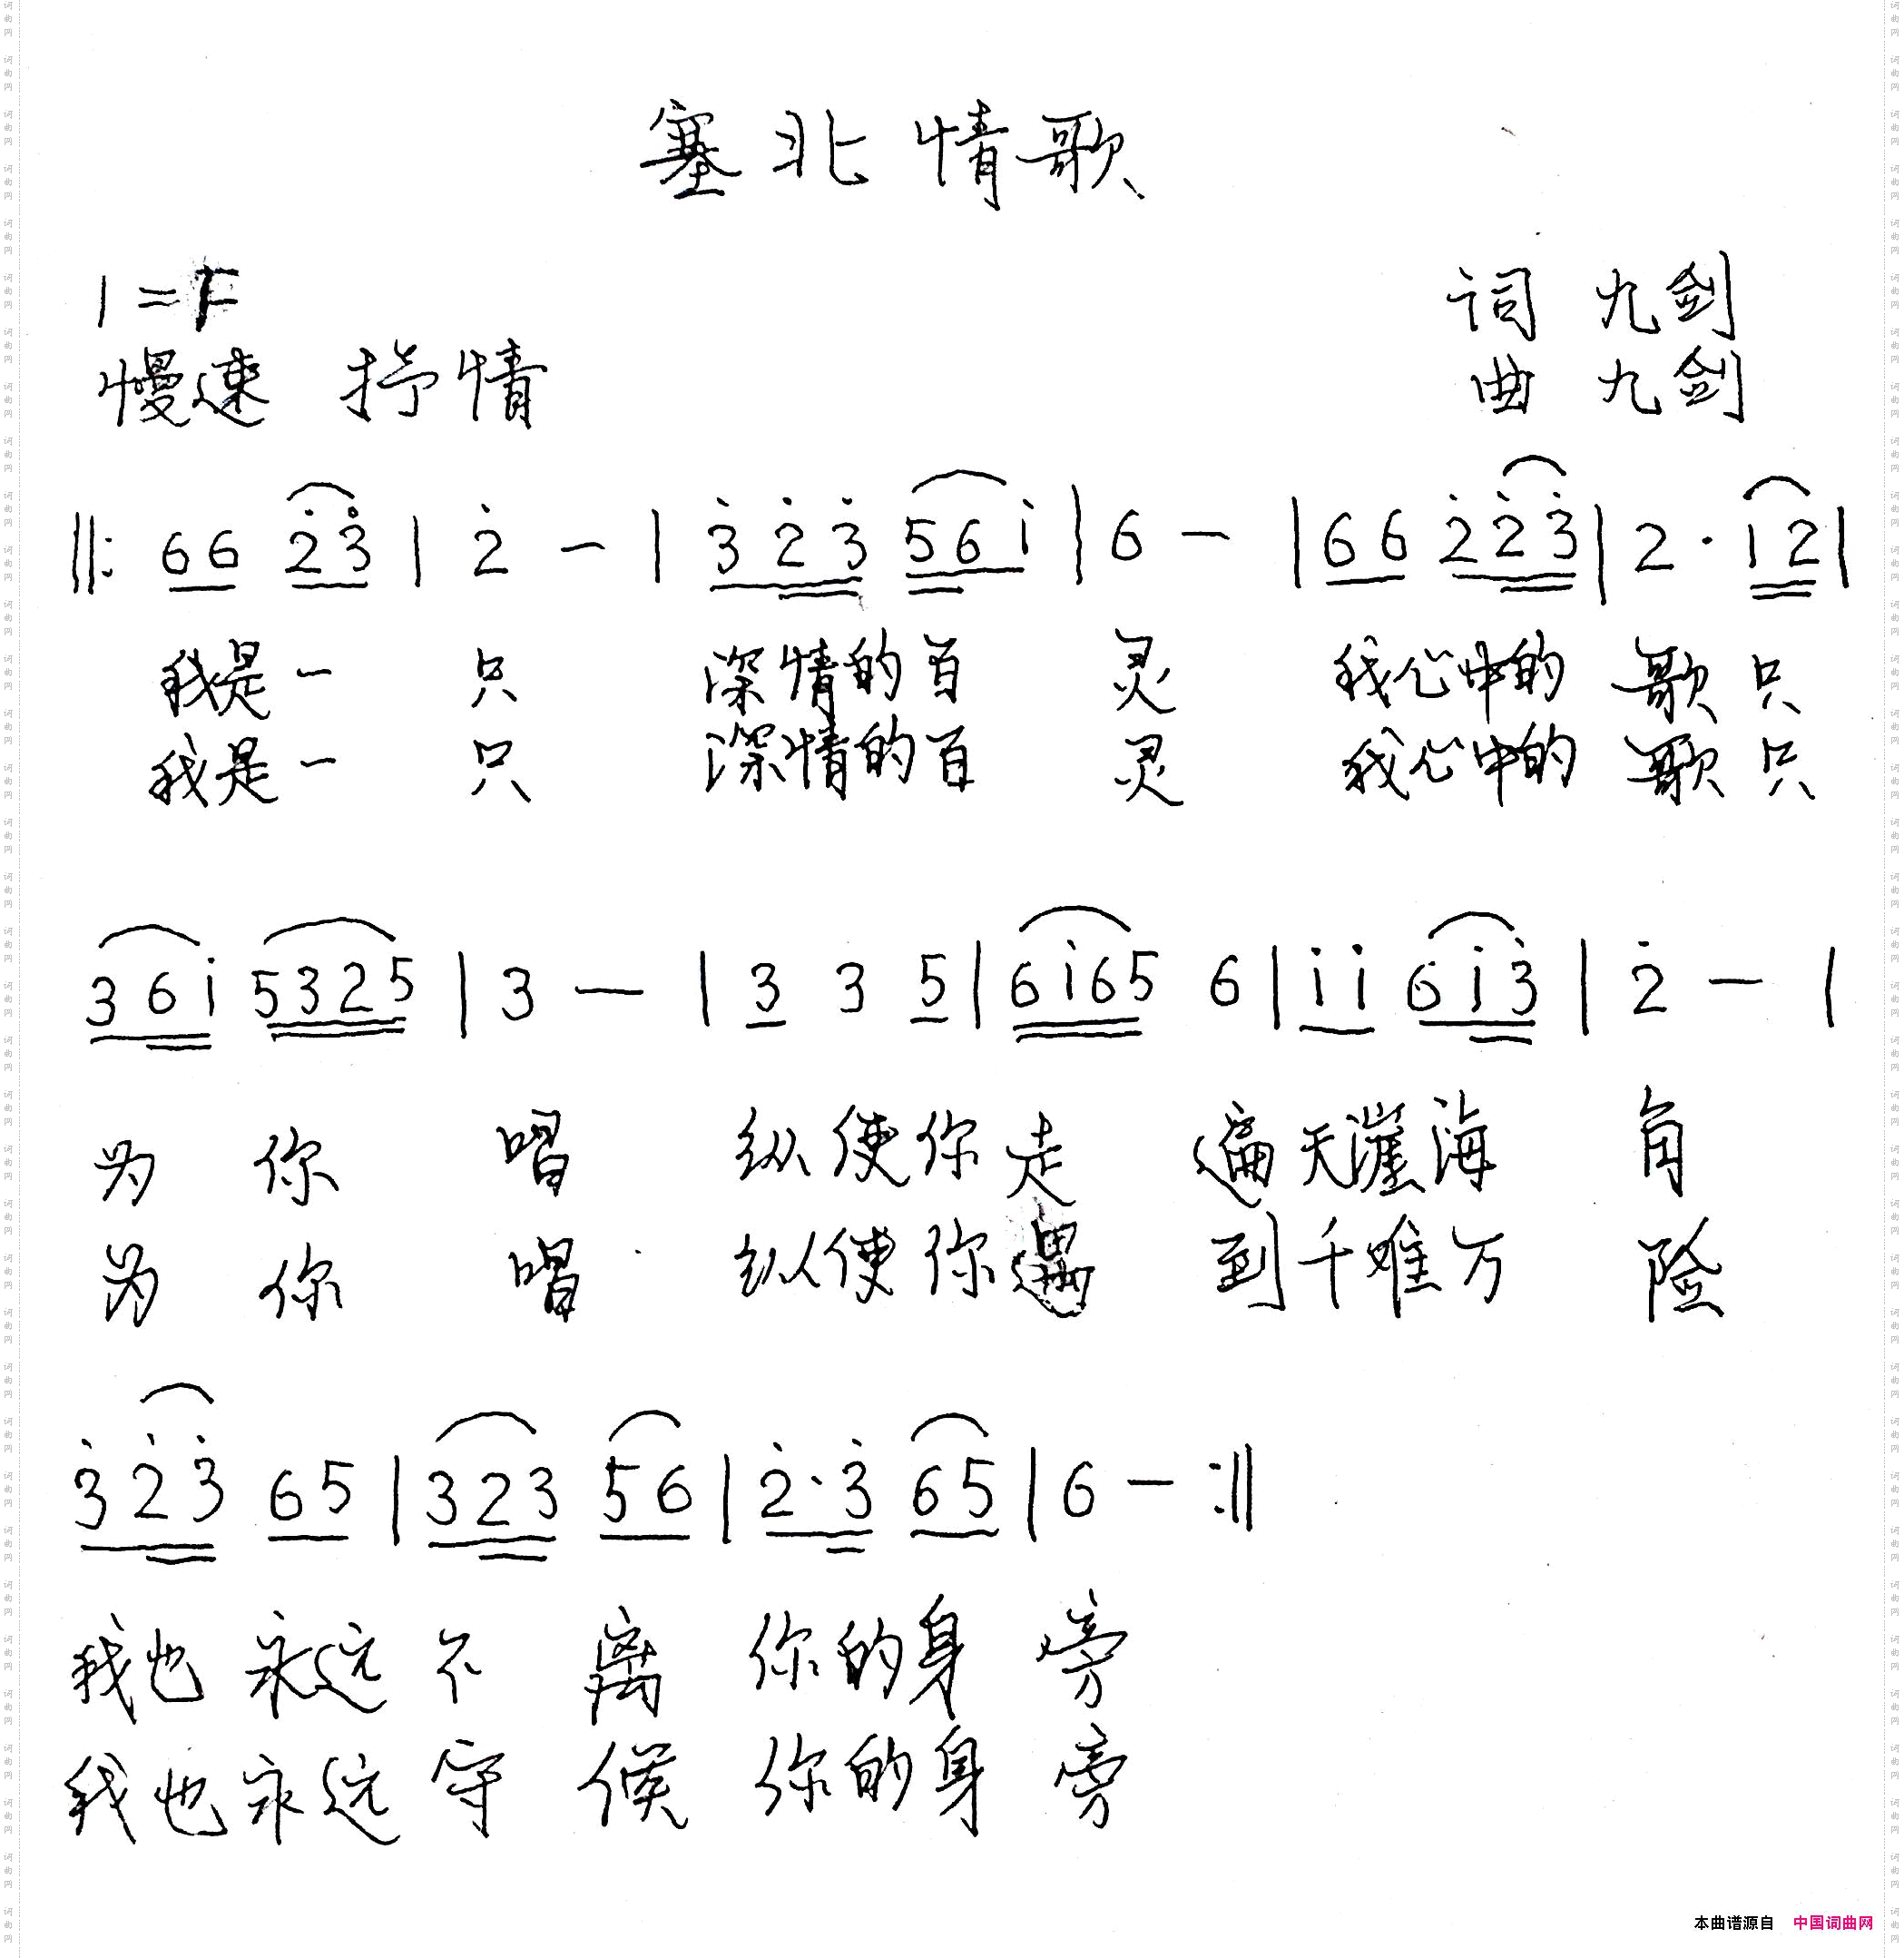 塞北情歌
1=F
词 九剑
慢速 抒情
曲 九剑
‖: 6 6 2̇ 3̇ | 2̇ — | 3̇ 2̇ 3̇ 5 6 1̇ | 6 — | 6 6 2̇ 2̇ 3̇ | 2 · 1 2 |
我是一 只 深情的百 灵 我心中的 歌只
我是一 只 深情的百 灵 我心中的 歌只
3 6 1̇ 5 3 2 5 | 3 — | 3 3 5 | 6 1̇ 6 5 6 | 1̇ 1̇ 6 1̇ 3̇ | 2̇ — |
为 你 唱 纵使你走 遍天涯海 角
为 你 唱 纵使你遇 到千难万 险
3̇ 2̇ 3̇ 6 5 | 3 2 3 5 6 | 2̇ · 3̇ 6 5 | 6 — :‖
我也永远不 离 你的身 旁
我也永远守 候 你的身 旁
本曲谱源自 中国词曲网